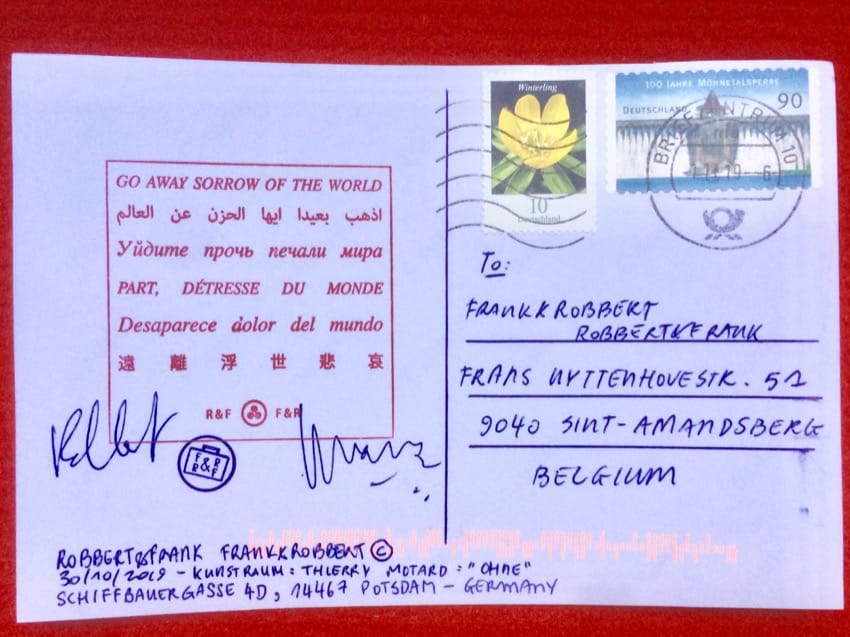 GO AWAY SORROW OF THE WORLD
اذهب بعيدا ايها الحزن عن العالم
Уйдите прочь печали мира
PART, DÉTRESSE DU MONDE
Desaparece dolor del mundo
遠離浮世悲哀
R&F F&R
F&R
R&F
ROBBERT&FRANK FRANK&ROBBERT ©
30/10/2019 - KUNSTRAUM: THIERRY MOTARD: "OHNE"
SCHIFFBAUERGASSE 4D, 14467 POTSDAM - GERMANY
Winterling
10
Deutschland
100 JAHRE MÖHNETALSPERRE
DEUTSCHLAND
90
BRIEFZENTRUM 10
To:
FRANK&ROBBERT
ROBBERT&FRANK
FRANS UYTTENHOVESTR. 51
9040 SINT-AMANDSBERG
BELGIUM